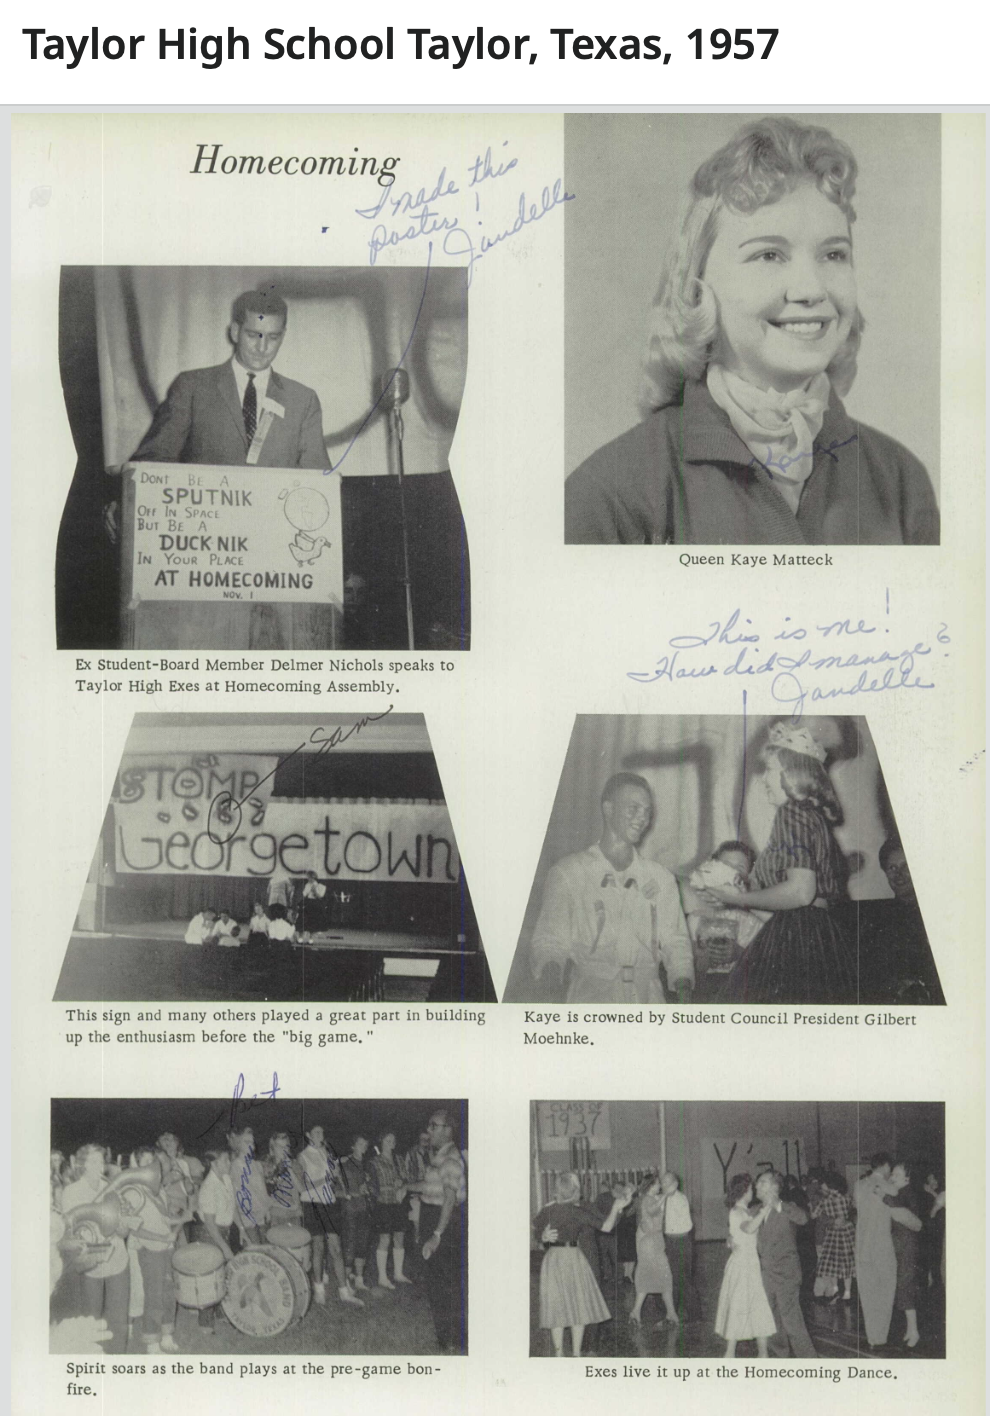 Taylor High School Taylor, Texas, 1957
Homecoming
I made this
poster!
Jandelle
DONT BE A
SPUTNIK
OFF IN SPACE
BUT BE A
DUCK-NIK
IN YOUR PLACE
AT HOMECOMING
NOV. 1
Ex Student-Board Member Delmer Nichols speaks to
Taylor High Exes at Homecoming Assembly.
Kaye
Queen Kaye Matteck
This is me!
How did I manage?
Jandelle
Sam
STOMP
Georgetown
This sign and many others played a great part in building
up the enthusiasm before the "big game."
Kaye is crowned by Student Council President Gilbert
Moehnke.
Pat
HIGH SCHOOL BAND
TAYLOR, TEXAS
Spirit soars as the band plays at the pre-game bon-
fire.
CLASS OF
1937
Y'all
Exes live it up at the Homecoming Dance.